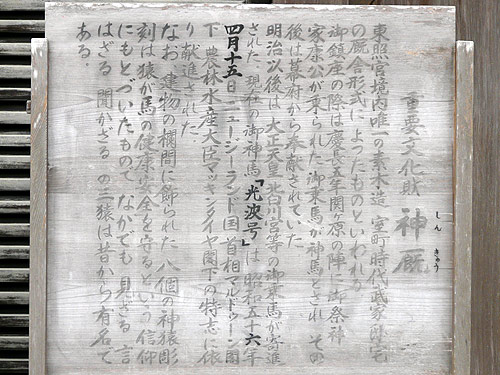 重要文化財 神厩
しん きゅう
東照宮境内唯一の素木造 室町時代武家邸宅
の厩合形式によつたものといわれる
御鎮座の際は慶長五年関ヶ原の陣に御祭神
家康公が乗られた御乗馬が神馬とされ その
後は幕府から奉献されていた
明治以後は 大正天皇 北白川宮等の御乗馬が寄進
された 現在の御神馬「光波号」は 昭和五十六年
四月十五日 ニュージーランド国首相マルドゥーン閣
下 農林水産大臣マッキンタイヤ閣下の特志に依
り献進された
なお 建物の欄間に飾られた 八個の神猿彫
刻は 猿が馬の健康安全を守るという信仰
にもとづいたもので なかでも 見ざる 言
はざる 聞かざる の三猿は昔から有名で
ある。